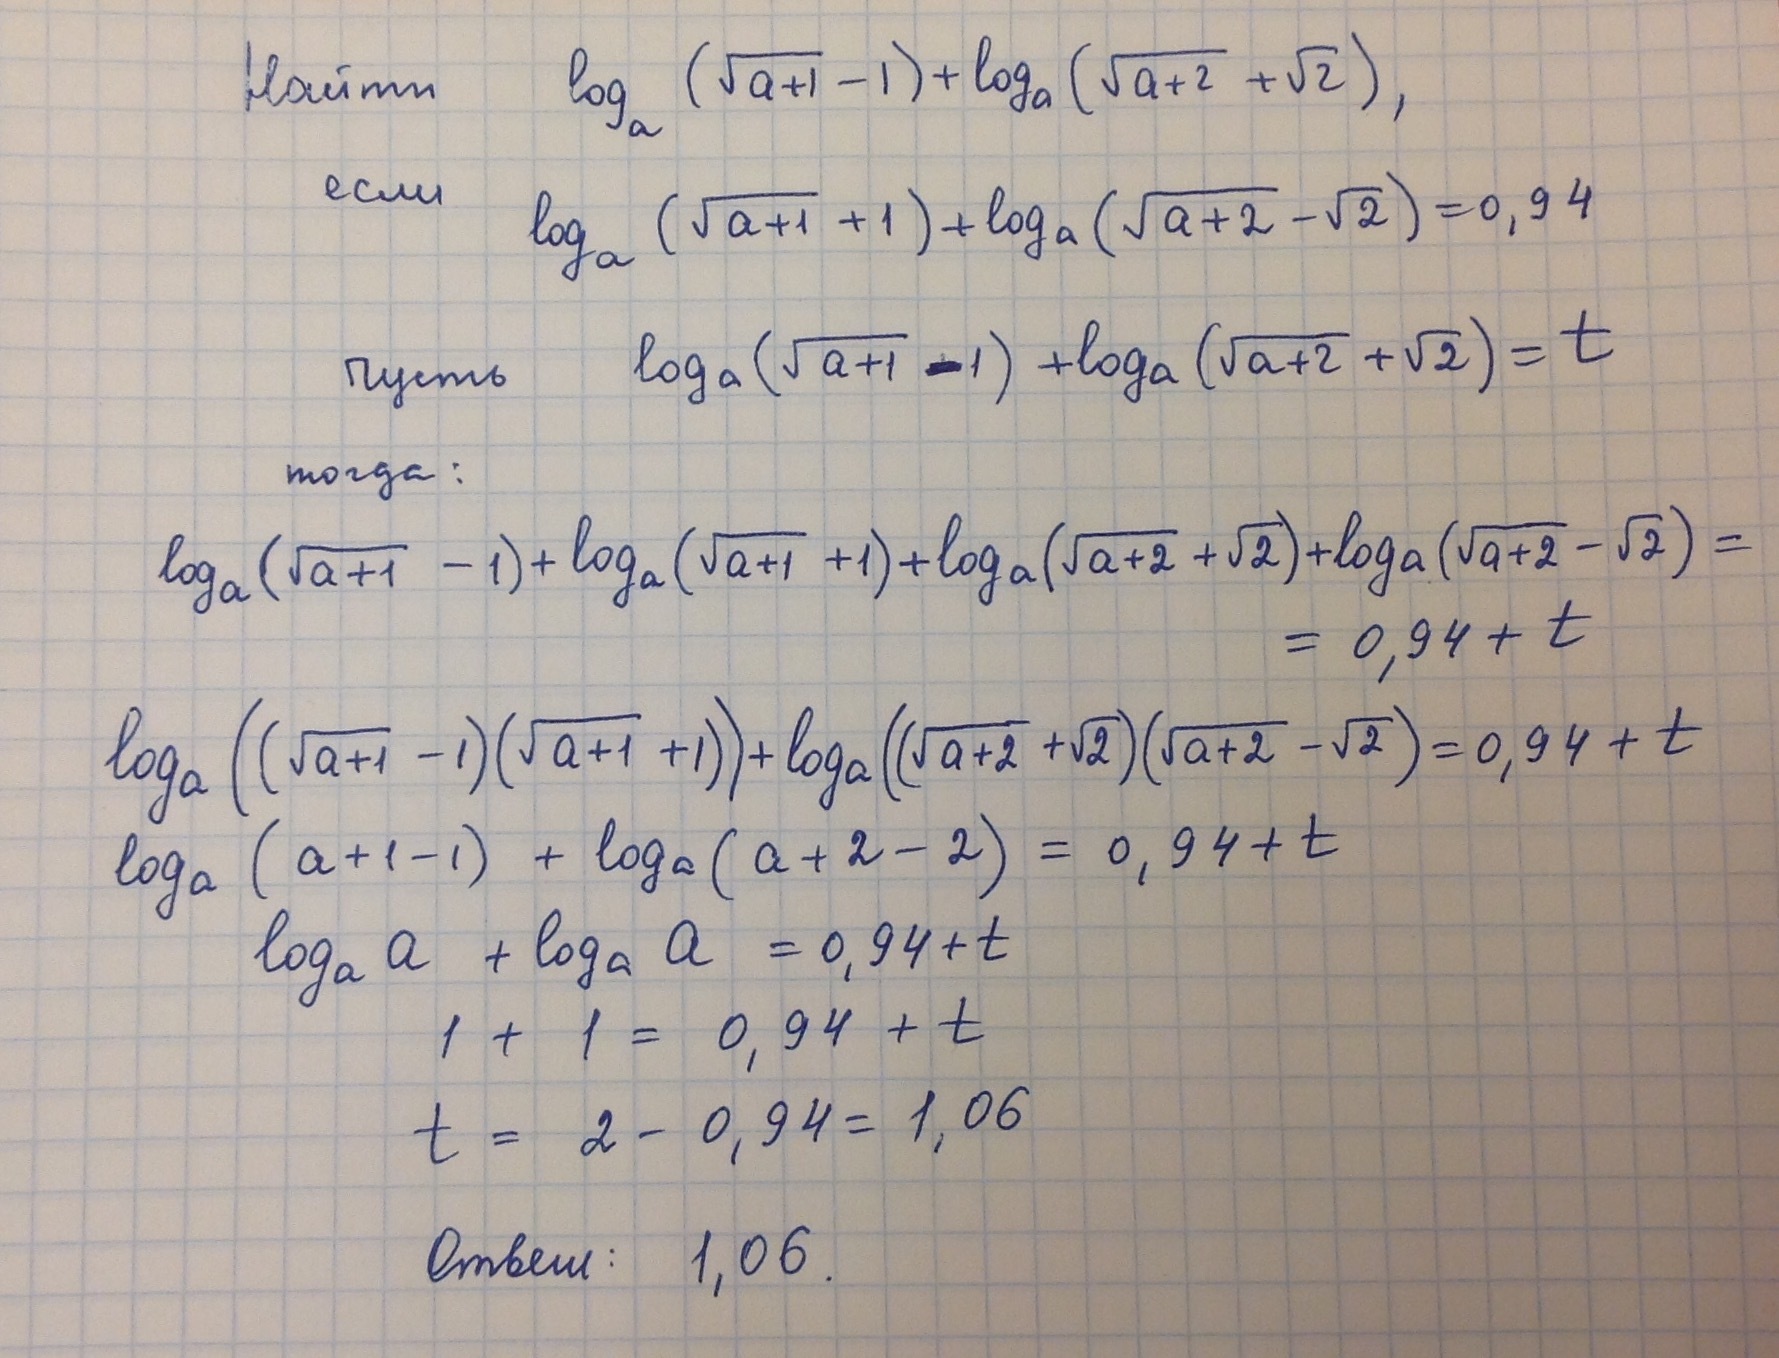 Найти log_a (√(a+1) − 1) + log_a (√(a+2) + √2),
если log_a (√(a+1) + 1) + log_a (√(a+2) − √2) = 0,94
Пусть log_a (√(a+1) − 1) + log_a (√(a+2) + √2) = t
тогда:
log_a (√(a+1) − 1) + log_a (√(a+1) + 1) + log_a (√(a+2) + √2) + log_a (√(a+2) − √2) =
= 0,94 + t
log_a ((√(a+1) − 1)(√(a+1) + 1)) + log_a ((√(a+2) + √2)(√(a+2) − √2) = 0,94 + t
log_a (a+1−1) + log_a (a+2−2) = 0,94 + t
log_a a + log_a a = 0,94 + t
1 + 1 = 0,94 + t
t = 2 − 0,94 = 1,06
Ответ: 1,06.